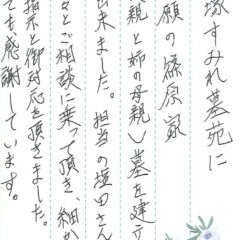 塚すみれ墓苑に
願の篠原家
親と姉の母親）墓を建
出来ました。担当の塩田さん
々とご相談に乗って頂き、細か
指示と御対応を頂きました。
ても感謝しています。